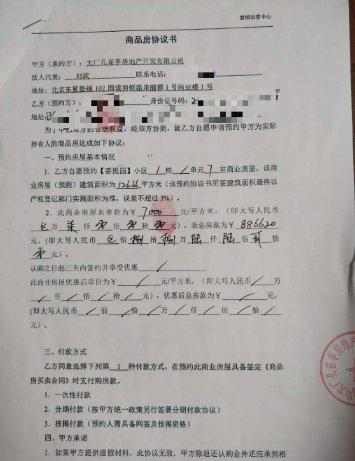 营销运营中心
商品房协议书
甲方（承约方）：大厂孔雀亭房地产开发有限公司
法人代表：刘武 联系电话：
地址：北京东夏垫镇102国道南侧温泉丽都1号商业楼1号
乙方（预约方）： 身份证号码：2
地址
为了 双方的合法权益，经双方协商，就乙方自愿申请预约甲方为实际
持有人的商品房达成如下协议：
一、预约房屋基本情况
1、乙方自愿预约【菩提园】小区1栋 单元7室商业房屋，该商
业房屋（预测）建筑面积为126.66平方米（该预约协议书所签建筑面积最终以
产权登记部门实测面积为准，误差不超过3%）。
2、此商业房屋表单价为￥7000元/平方米，（即大写人民币
柒仟零佰零拾零元），表总房款为￥886620
元，（即大写人民币 佰捌拾捌万陆仟陆佰贰拾
零元）。
认购之日起三天内签约并享受优惠
此商业房屋优惠后单价为￥ 元/平方米，（即大写人民币 万
仟 佰 拾 元），优惠后总房款为￥ 元，
（即大写人民币 佰 拾 万 仟 佰 拾
元）。
三、付款方式
乙方同意选择下列第1种付款方式，在预约此商业房屋具备签定《商品
房买卖合同》时支付购房款。
1、一次性付款
2、分期付款（按甲方统一政策另行签署分期付款协议）
3、按揭付款（预约人需具备网签及按揭资格）
四、甲方承诺
1、如某甲方提供虚假材料，此协议无效，甲方除退还认购金外还应承担相